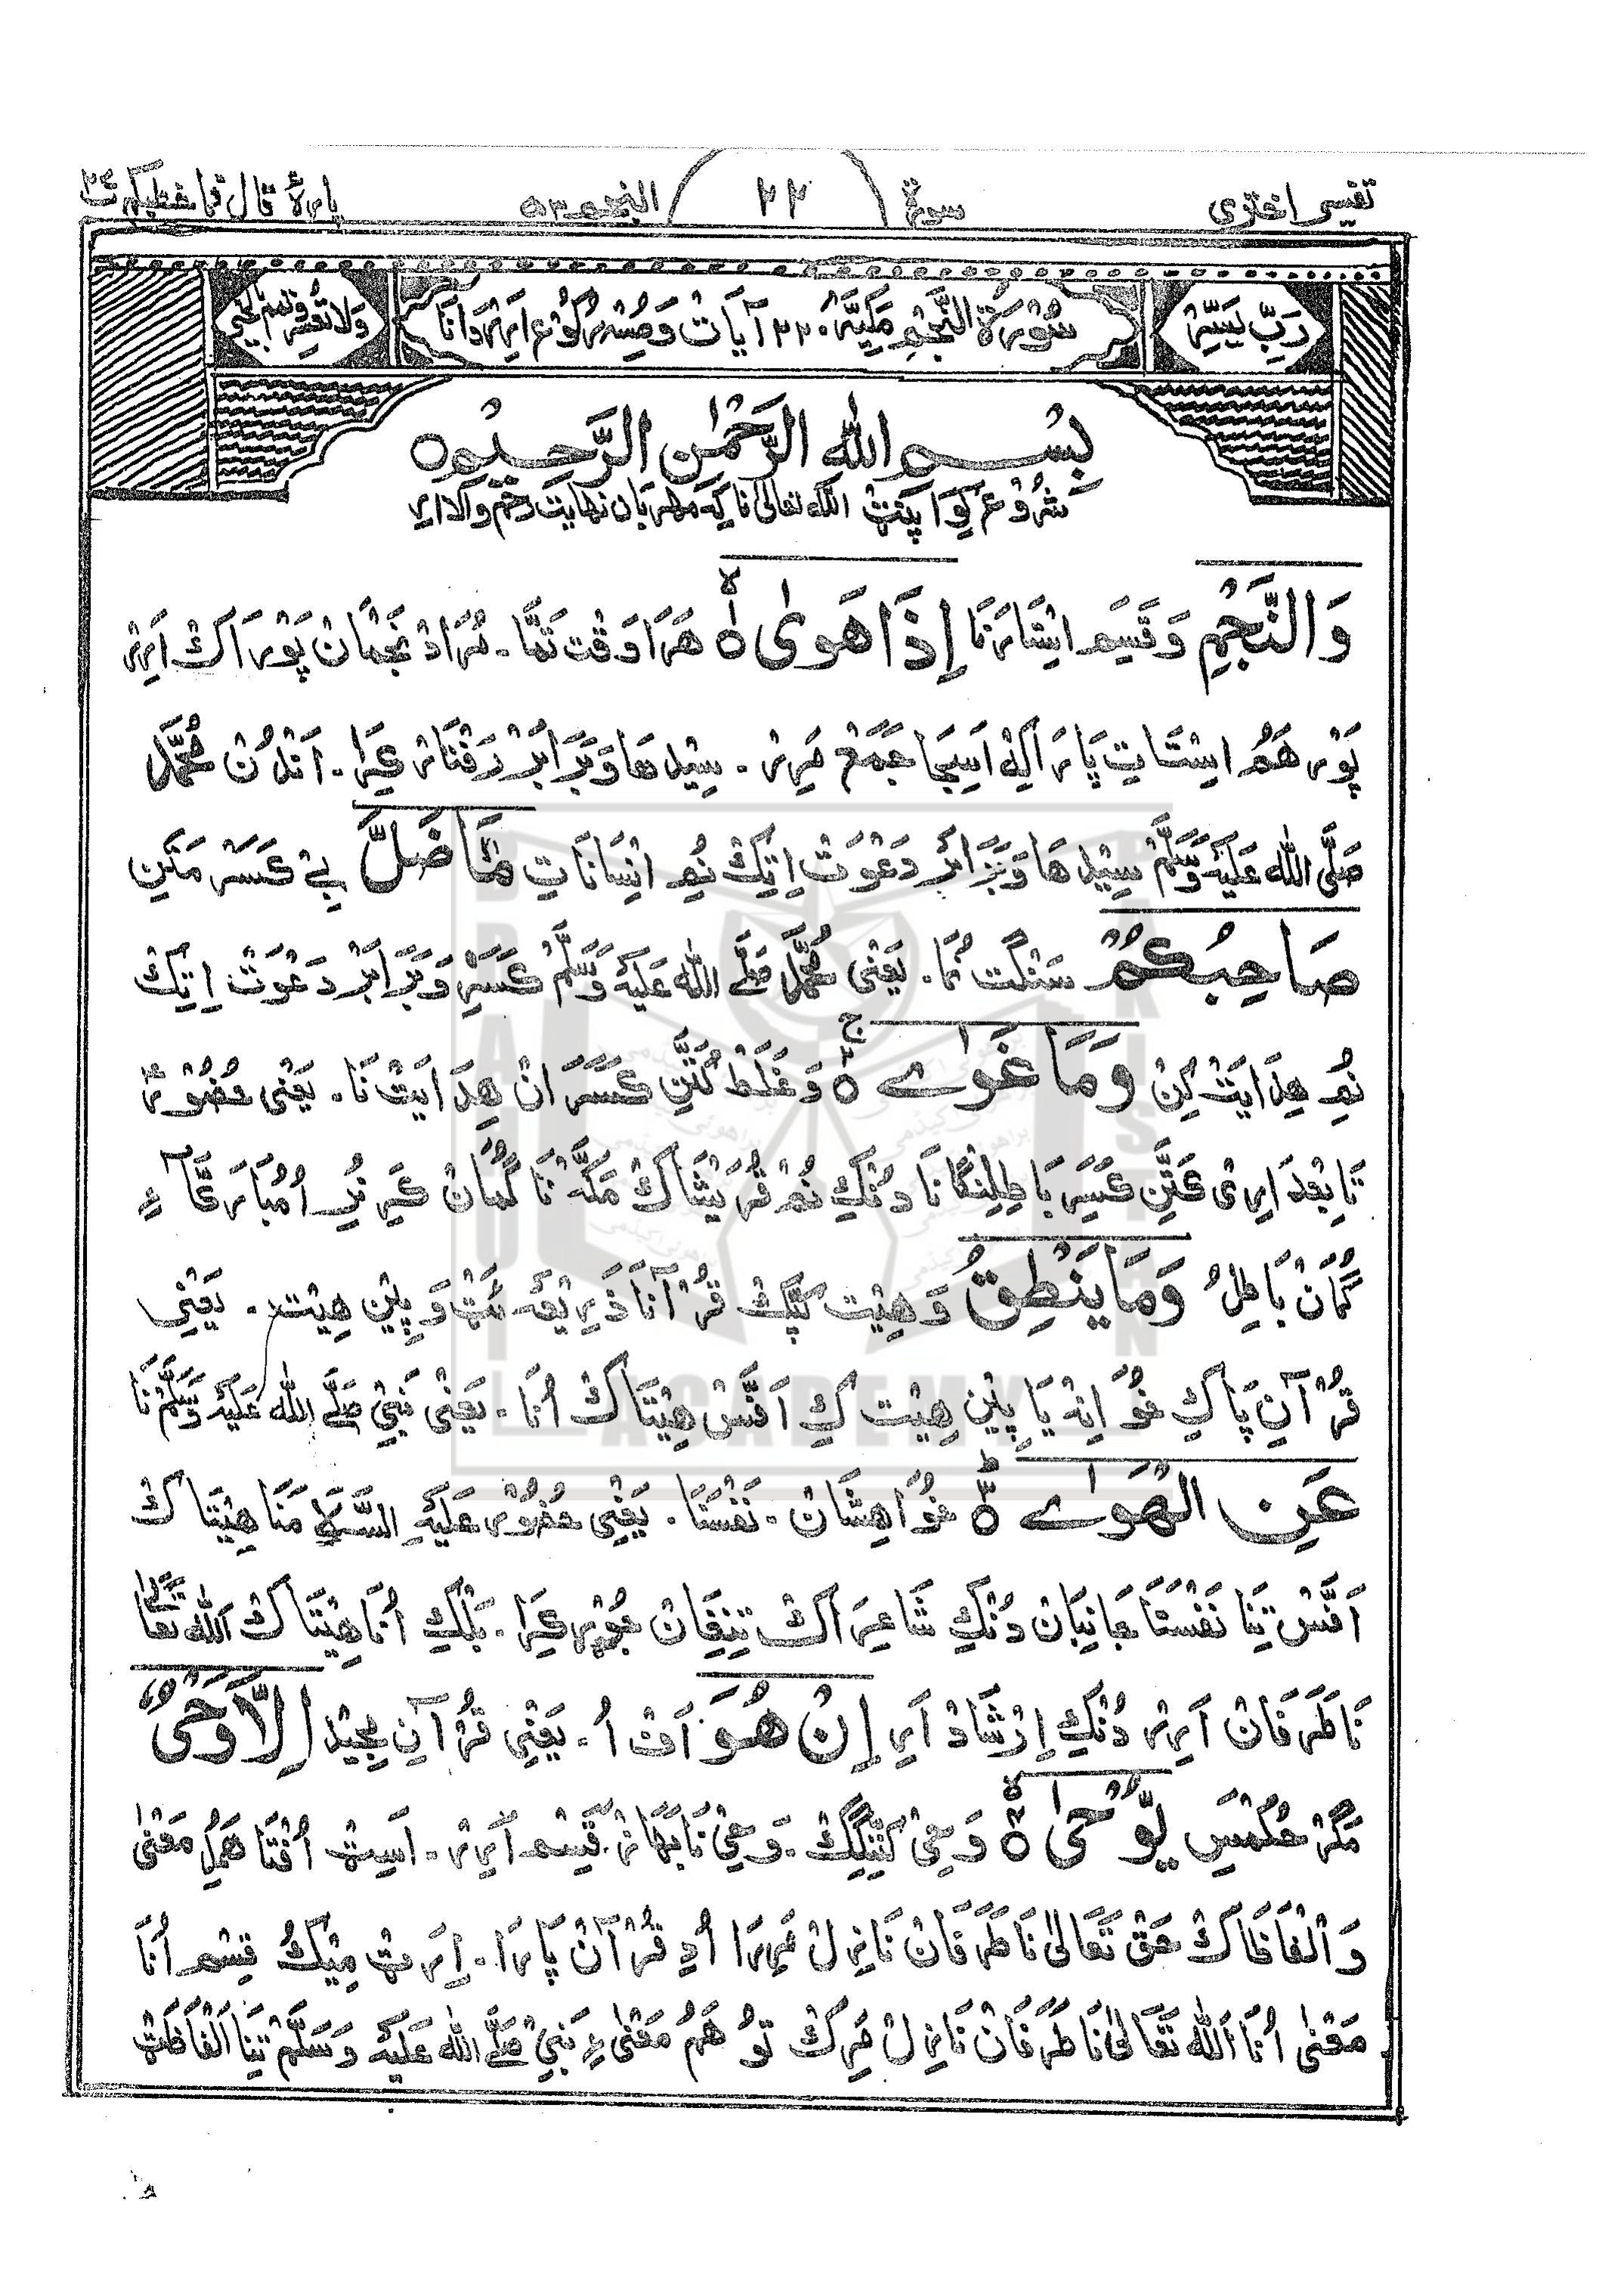 تفسیر اختری سورة ٢٢ النجم ٥٣ پارۂ قال فما خطبکم ٢٧
رَبِّ یَسِّرْ سُوْرَةُ النَّجْمِ مَکِیَّةٌ ٢٢ آیَاتْ وَ مُسِہ رُکُوْع اَرِیْر وَانَا وَلَا تُعَسِّرْ وَتَمِّمْ بِالْخَیْرِ
بِسْمِ اللّٰهِ الرَّحْمٰنِ الرَّحِیْمِ ۝
شُرُوْع کِیْوَا پِنَٹْ اللہ تعالیٰ نَا کِہ مِهْرَبَان نِهَایَت رَحْم وَالَا اَرے
وَالنَّجْمِ وَ قَسَم اِسْتَارَنَا اِذَا هَوٰی ۝ هَرَا وَقْت تَمَّا۔ مُرَادْ نَجْمَانْ پَوْرَاکْ اَرِیْر
پَوْر هَمُ اِسْتَاتِ پَارَا کِہ اَسِجَا جَمَعْ مَرِیْر۔ سِیْدهَا وَ بَرَابَرْ رَفْتَارْ کِیْرَا۔ اَنْدُنْ مُحَمَّد
صَلَّی اللہ عَلَیْهِ وَسَلَّمْ سِیْدهَا وَ بَرَابَرْ دَعْوَتْ اِتِکْ نُمِ اِنْسَانَاتِ مَا ضَلَّ بے کَسَرْ مَتَنِ
صَاحِبُکُمْ سَنْگَت نُمَا۔ یَعْنِی مُحَمَّد صَلَّے اللہ عَلَیْهِ وَسَلَّمْ کَسَرِ وَ بَرَابَرْ دَعْوَتْ اِتِکْ
نُمِ هِدَایَتْ کِنْ وَمَا غَوٰے ۝ ج وَ غَلَطْ کَتَنِ کَسَرَانْ هِدَایَتْ نَا۔ یَعْنِی حُضُوْر
تَابِعْدَارِی کَتَنِ کَسَرِ بَاطِلِنگَا نَا دُنْکِہ نُمْ قُرَیْشَاکْ مَکَّہ نَا گُمَانْ کَرِے نُدِ اُمُبَارَکَا ءِ
گُمَانْ بَاطِلُ وَمَا یَنْطِقُ وَ هِیْت کَپِکْ قُرْآنَا ذَرِیْعَہ ئَٹْ وَ پِیْنِ هِیْت۔ یَعْنِی
قُرْآنِ پَاکِ خُوَانِہ یَا پِیْنِ هِیْت کِہ اَفَسْ هِیْتَاکْ اُنَا۔ یَعْنِی نَبِیْ صَلَّے اللہ عَلَیْهِ وَسَلَّمْ نَا
عَنِ الْهَوٰے ۝ ط خُوَاهِشَانْ۔ نَفْسَنَا۔ یَعْنِی حُضُوْر عَلَیْهِ السَّلَامْ نَا هِیْتَاکْ
اَفَسْ تِنَا نَفْسَنَا جَانِبَانْ دُنْکِہ شَاعِرَاکْ تِنِفَانْ جُوْرْ کِیْرَا۔ بَلْکِہ اُنَا هِیْتَاکْ اللہ تَعَالٰی
نَا طَرَفَانْ اَرِیْر دُنْکِہ اِرْشَادْ اَرے اِنْ هُوَ اَفْ اُ۔ یَعْنِی قُرْآنِ مَجِیْد اِلَّا وَحْیٌ
مَگَرْ حُکْمَسِ یُّوْحٰی ۝ وَحِیْ کَنِنْگِکْ۔ وَحِیْ نَا بَهَازْ قِسْم اَرِیْر۔ اَسِٹْ اُفْتَا هَمُ مَعْنٰی
وَ اَلْفَاظَاکْ حَقْ تَعَالیٰ نَا طَرَفَانْ نَازِلْ مَرِیْرَا اُدِ قُرْآنْ پَارَا۔ اِرَٹْ مِیْکُ قِسْم اُنَا
مَعْنٰی اُنَا اللہ تَعَالیٰ نَا طَرَفَانْ نَازِلْ مَرِکْ تَوْ هَمُ مَعْنٰی ءِ نَبِیْ صَلَّے اللہ عَلَیْهِ وَسَلَّمْ تِنَا اَلْفَاظَٹْ
BRAHUI
ACADEMY
PAKISTAN